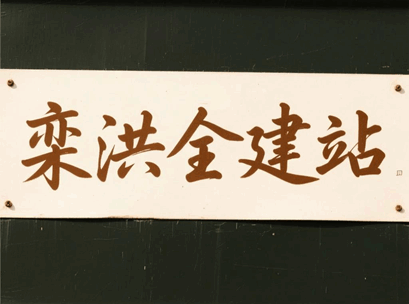 栾洪全建站